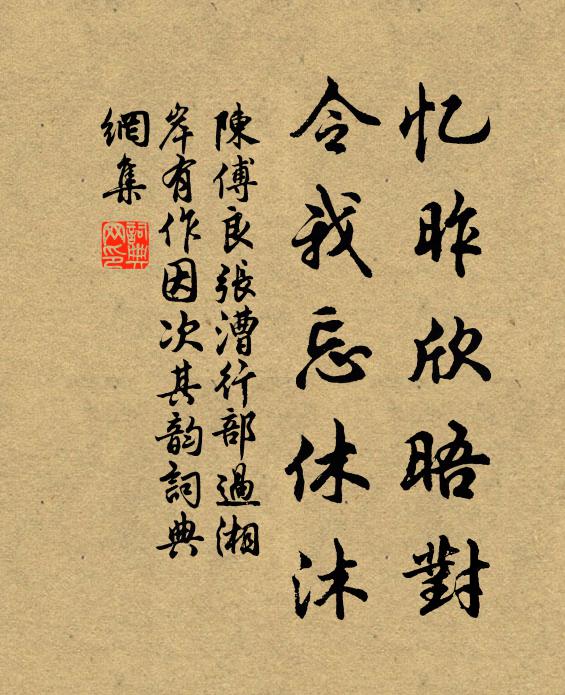 忆昨欣晤對
令我忘休沐
陳傅良張漕行部過湘
岸有作因次其韵詞典
網集
詞典
网印